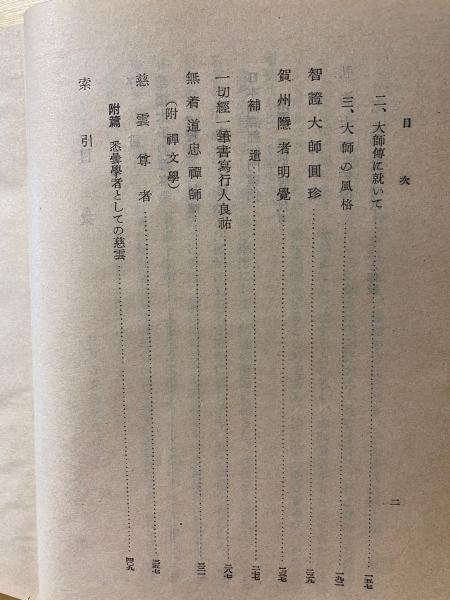 目次
二、大師傳に就いて……一五七
三、大師の風格……一九二
智證大師圓珍……
賀州隱者明覺……
補遺……
一切經一筆書寫行人良祐……二八七
無着道忠禪師……
（附 禪文學）
慈雲尊者……
附篇 悉曇學者としての慈雲……四〇九
索引
二